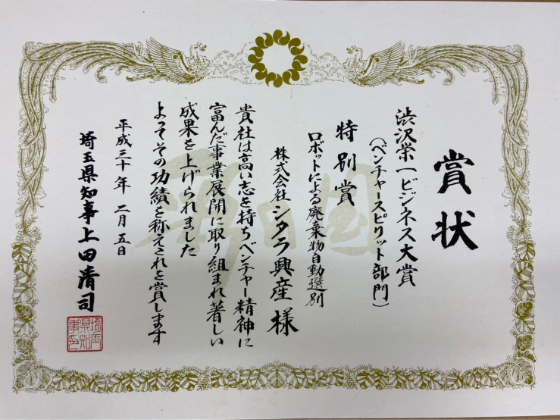 賞状
渋沢栄一ビジネス大賞
（ベンチャースピリット部門）
特別賞
ロボットによる廃棄物自動選別
株式会社シタラ興産 様
貴社は高い志を持ちベンチャー精神に
富んだ事業展開に取り組まれ著しい
成果を上げられました
よってその功績を称えこれを賞します
平成三十年 二月五日
埼玉県知事 上田清司